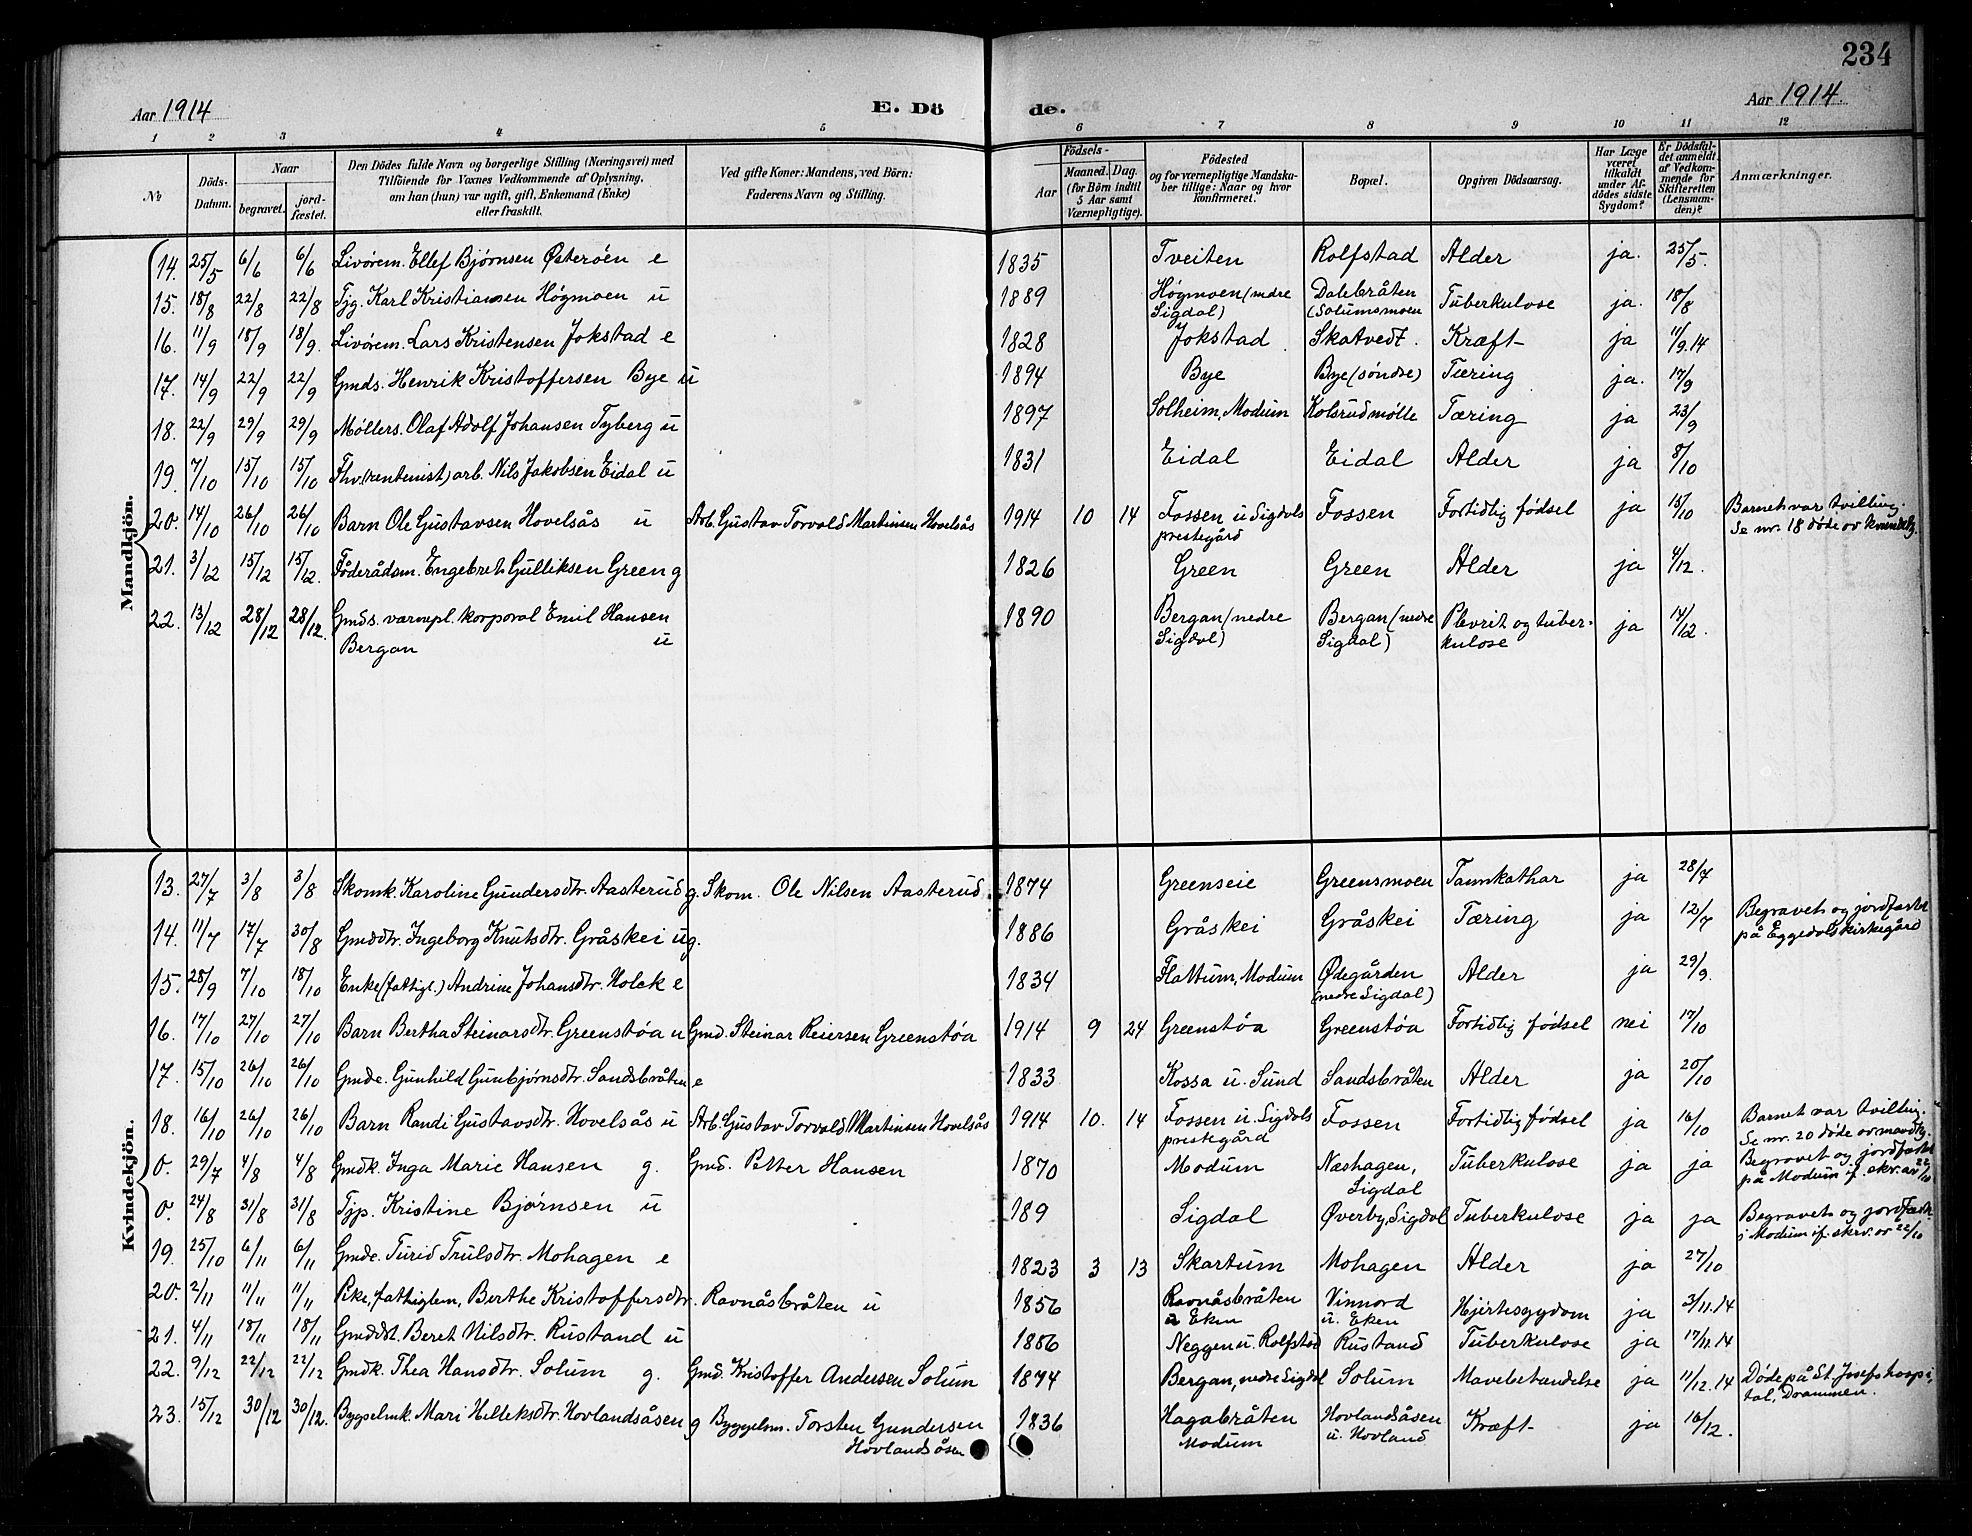 234
Aar 1914
E. Dö
de.
Aar 1914.
1 2 3 4 5 6 7 8 9 10 11 12
№
Döds-Datum.
Naar
begravet.
jord-fæstet.
Den Dödes fulde Navn og borgerlige Stilling (Næringsvei) med
Tilföiende for Voxnes Vedkommende af Oplysning,
om han (hun) var ugift, gift, Enkemand (Enke)
eller fraskilt.
Ved gifte Koner: Mandens, ved Börn:
Faderens Navn og Stilling.
Födsels-
Aar
Maaned. Dag.
(for Börn indtil
5 Aar samt
Værnepligtige).
Födested
og for værnepligtige Mandska-
ber tillige: Naar og hvor
konfirmeret.
Bopæl.
Opgiven Dödsaarsag.
Har Læge
været
tilkaldt
under Af-
dödes sidste
Sygdom?
Er Dödsfal-
det anmeldt
af Vedkom-
mende for
Skifteretten
(Lensman-
den)?
Anmærkninger.
Mandkjön.
14. 25/5 6/6 6/6 Livørem. Ellef Bjørnsen Østerøen e 1835 Tveiten Rolfstad Alder ja. 25/5.
15. 18/8 22/8 22/8 Tjg. Karl Kristiansen Högmoen u 1889 Högmoen (nedre Sigdal) Dalebråten (Solumsmoen Tuberkulose ja. 18/8
16. 11/9 18/9 18/9. Livörem. Lars Kristensen Jokstad e 1828 Jokstad Skatvedt. Kræft ja 11/9.14
17. 14/9 22/9 22/9 Gmds. Henrik Kristoffersen Bye u 1894 Bye Bye (söndre) Tæring ja. 17/9
18. 22/9 29/9 29/9 Møllers. Olaf Adolf Johansen Tyberg u 1897 Solheim, Modum Kolsrudmølle Tæring ja 23/9
19. 7/10 15/10 15/10 Fhv. (rentenist) arb. Nils Jakobsen Eidal u 1831 Eidal Eidal Alder ja 8/10
20. 14/10 26/10 26/10 Barn Ole Gustavsen Hovelsås u Arb. Gustav Torvald Martinsen Hovelsås 1914 10 14 Fossen u Sigdals prestegård Fossen Fortidlig fødsel ja 15/10 Barnet var tvilling. Se nr. 18 døde av kvindekj.
21. 3/12 15/12 15/12. Föderådsm. Engebret Gulliksen Green g 1826 Green Green Alder ja 4/12.
22. 13/12 28/12 28/12. Gmds.værnepl. korporal Emil Hansen Bergan u 1890 Bergan (nedre Sigdal) Bergan (nedre Sigdal) Plevrit og tuber-kulose ja 14/12.
Kvindekjön.
13. 27/7 3/8 3/8 Skomk. Karoline Gundersdtr. Aasterud g. Skom. Ole Nilsen Aasterud 1874 Greenseie Greensmoen Tarmkathar ja 28/7
14. 11/7 17/7 30/8 Gmddtr. Ingeborg Knutsdtr. Gråskei ug. 1886 Gråskei Gråskei Tæring ja 12/7 Begravet og jordfæstet på Eggedals kirkegård
15. 28/9 7/10 18/10 Enke (fattigl.) Andrine Johansdtr. Holck e 1834 Flattum, Modum Ødegården (nedre Sigdal) Alder ja 29/9.
16. 17/10 27/10 27/10 Barn Bertha Steinarsdtr. Greenstøa u Gmd. Steinar Reiersen Greenstøa 1914 9 24 Greenstøa Greenstøa Fortidlig fødsel nei 17/10
17. 15/10 26/10 26/10 Gmde. Gunhild Gunbjørnsdtr. Sandsbråten e 1833 Kossa u. Sund Sandsbråten Alder ja 20/10
18. 16/10 26/10 26/10 Barn Randi Gustavsdtr. Hovelsås u Arb. Gustav Torvald Martinsen Hovelsås 1914 10. 14 Fossen u. Sigdals prestegård Fossen Fortidlig fødsel ja 16/10 Barnet var tvilling. Se nr. 20 døde av mandkj.
0. 29/7 4/8 4/8 Gmdk. Inga Marie Hansen g. Gmd. Petter Hansen 1870 Modum Næshagen, Sigdal Tuberkulose ja ja Begravet og jordfæstet på Modum if. skr. av 22/10
0. 24/8 31/8 31/8 Tjp. Kristine Bjørnsen u 189 Sigdal Øverby, Sigdal Tuberkulose ja ja Begravet og jordfæstet i Modum if. skrv. av 22/10
19. 25/10 6/11 6/11 Gmde. Turid Trulsdtr. Mohagen e 1823 3 13 Skartum Mohagen Alder ja 27/10
20. 2/11 11/11 11/11 Pike, fattiglem, Berthe Kristoffersdtr. Ravnåsbråten u 1856 Ravnåsbråten u Eken Vinnord u. Eken Hjertesygdom ja 3/11.14
21. 4/11 18/11 18/11 Gmddt. Beret Nilsdtr. Rustand u 1886 Neggen u. Rolfstad Rustand Tuberkulose ja 17/11.14
22. 9/12 22/12 22/12 Gmdk. Thea Hansdtr. Solum g. Gmd. Kristoffer Andersen Solum 1874 Bergan, nedre Sigdal Solum Mavebetændelse ja 11/12.14 Døde på St. Josefs hospi-tal, Drammen.
23. 15/12 30/12 30/12. Bygselmk. Mari Helleksdtr. Hovlandsåsen g Byggelsm. Torsten Gundersen Hovlandsåsen 1836 Hagabråten Modum Hovlandsåsen u. Hovland Kræft ja 16/12.